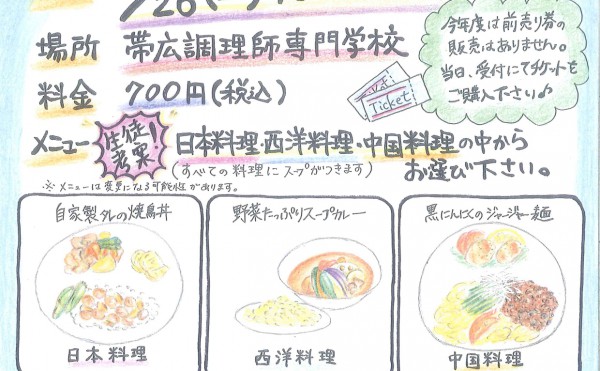 7/26
場所 帯広調理師専門学校
料金 700円(税込)
メニュー 生徒考案! 日本料理・西洋料理・中国料理の中から
お選び下さい。
(すべての料理にスープがつきます)
※メニューは変更になる可能性があります。
今年度は前売り券の
販売はありません。
当日、受付にてチケットを
ご購入下さい♪
Ticket
自家製タレの焼鳥丼
野菜たっぷりスープカレー
黒にんにくのジャージャー麺
日本料理
西洋料理
中国料理